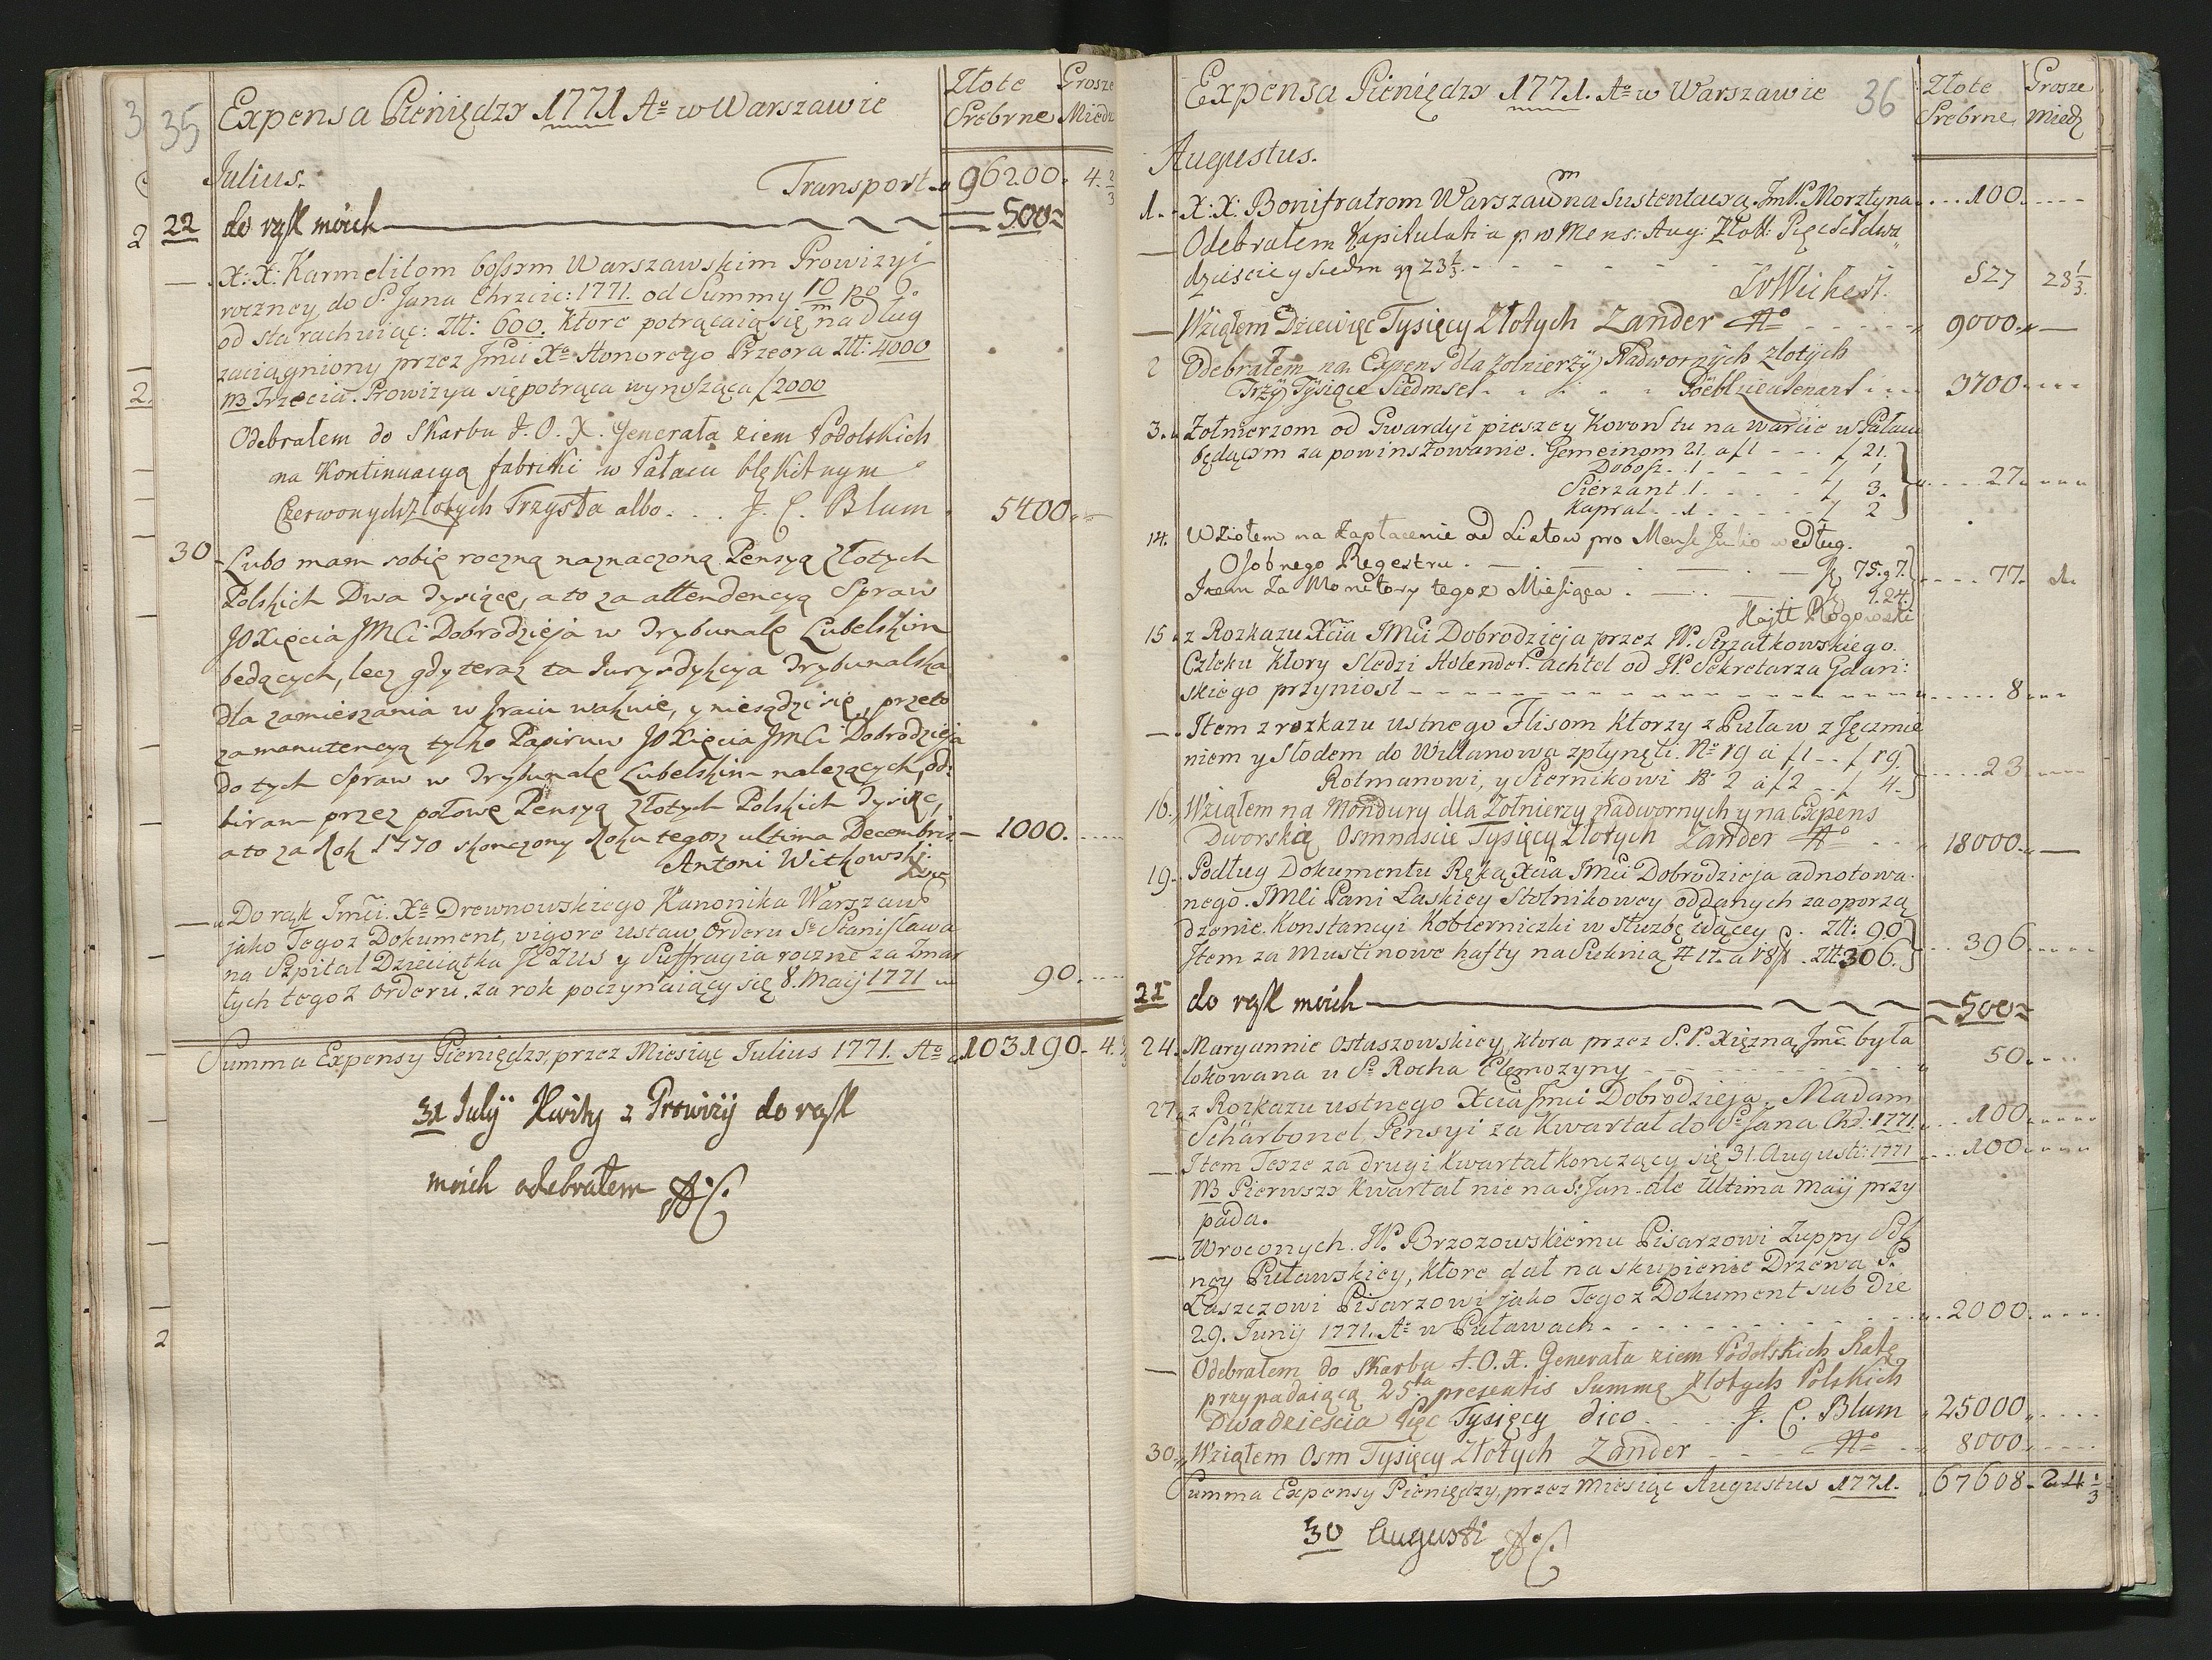 35 Expensa Pieniędzy 1771 Aº w Warszawie
Złote Srebrne
Grosze Miedz
Julius.
Transport 96200. 4. 2/3
22 do rąk moich 500
X: X: Karmelitom bossym Warszawskim Prowizyi
roczney do S. Jana Chrzcic: 1771. od Summy 10/m po 6.
od sta rachuiąc: Złł: 600. Ktore potrącaią się na dług
zaciągniony przez Jmci Xa Honorego Przeora Złł: 4000
NB Trzecia Prowizya się potrąca wynosząca f 2000
Odebrałem do Skarbu J. O. X. Generała ziem Podolskich
na Kontinuacyą fabriki w Pałacu błękitnym
Czerwonych Złotych Trzysta albo. . . J. C. Blum 5400
30 Lubo mam sobie roczną naznaczoną Pensyą Złotych
Polskich Dwa tysiące, a to za attendencyą Spraw
JOXięcia JMCi Dobrodzieja w Trybunale Lubelskim
będących, lecz gdy teraz ta Jurysdykcya Trybunalska
dla zamieszania w Kraiu wakuie, y niesądzi się, przeto
za manutencyą tylko Papirow JOXięcia JMCi Dobrodzieja
do tych Spraw w Trybunale Lubelskim należących, od:
biram przez połowę Pensyą Złotych Polskich Tysiąc,
a to za Rok 1770 skończony Roku tegoż ultima Decembris 1000.
Antoni Witkowski
Do rąk Jmci. Xa Drewnowskiego Kanonika Warszaw
jako Tegoz Dokument, vigore ustaw Orderu Sº Stanisława
na Szpital Dzieciątka JEZUS y Suffragia roczne za Zmar
łych tegoz Orderu, za rok poczynaiący się 8. Maij 1771 90.
Summa Expensy Pieniędzy, przez Miesiąc Julius 1771. Aº 103190. 4.
31 Julij Kwity z Prowizij do rąk
moich odebrałem AC
Expensa Pieniędzy 1771. Aº w Warszawie 36
Złote Srebrne
Grosze Miedz
Augustus.
1. X: X: Bonifratrom Warszaw na Sustentacyą Jm P. Morsztyna 100.
Odebrałem Kapitulatia pro Mens: Aug: Złott: Pięćset dwa
dzieście y siedm gr 23 1/3. 527 23 1/3.
Wziąłem Dziewięć Tysięcy Złotych Zander 9000.
2 Odebrałem na Expens dla Zołnierzÿ Nadwornÿch złotÿch
Trzÿ Tÿsiące Siedmset 3700
3. Zołnierzom od Gwardyi pieszey Koron tu na warcie w Pałacu
będącym za powinszowanie. Gemeinom 21. a f 1 f 21.
Dobosz. 1 f 1
Sierzant 1. f 3.
Kapral. 1 f 2
27
14. Wziołem na zapłacenie od Listow pro Mense Julio według.
Osobnego Regestru. f 75. g 7.
Item za Monitory tegoz Miesiąca f 1. 24.
77. 1.
Rogowski
15. z Rozkazu Xcia JMci Dobrodzieja przez W. Strzałkowskiego.
Człeku Ktory Sledzi Holender. achtel od W. Sekretarza Gdań:
skiego przyniosł 8
Item z rozkazu ustnego Flisom Ktorzy z Puław z Jęczmie
niem y Słodem do Willanowa zpłynęli. Nº 19 a f 1 f 19.
Rotmanowi, y Sternikowi Nº 2 a f 2 f 4.
23
16. Wziąłem na Mondury dla Zołnierzy Nadwornych y na Expens
Dworską Osmnascie Tysięcy Złotych Zander 18000
19. Podług Dokumentu Ręką Xcia JMci Dobrodzieja adnotowa:
nego. JMCi Pani Laskiey Stolnikowey oddanych za oporzą
dzenie Konstancyi Kobierniczki w Służbę idącey Złł: 90
Item za Muslinowe hafty na Suknią # 17. a 18 f. Złł: 306.
396
22 do rąk moich 500
24. Maryannie Ostaszowskiey, Ktora przez S. P. Xiężną Jmć była
lokowana u Sº Rocha Elemozyny 50
27. z Rozkazu ustnego Xcia Jmci Dobrodzieja. Madam
Schärbonel Pensyi za Kwartał do Sº Jana Chr: 1771. 100
Item Teyze za drugi Kwartał kończący się 31. Augusti: 1771 100
NB Pierwszy Kwartał nie na S: Jan. ale Ultima Maij przy
pada.
Wroconych. W. Brzozowskiemu Pisarzowi Zuppy Sol
ney Puławskiey, Ktore dał na skupienie Drzewa P.
Łaszczowi Pisarzowi jako Tegoz Dokument sub Die
29. Junij 1771. Aº w Puławach 2000
Odebrałem do Skarbu J. O. X. Generała ziem Podolskich Ratę
przypadaiącą 25ta presentis Summę złotych Polskich
Dwadzieścia Pięć Tysięcy dico J. C. Blum 25000
30. Wziąłem Osm Tysięcy Złotych Zander 8000
Summa Expensy Pieniędzy, przez Miesiąc Augustus 1771. 67608. 24 1/3
30 Augusti AC